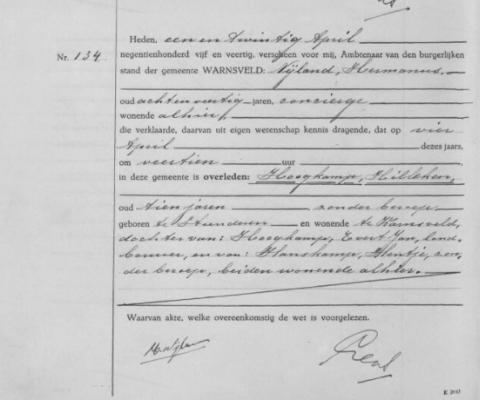 Nr. 134
Heden, een en twintig April
negentienhonderd vijf en veertig, verscheen voor mij, Ambtenaar van den burgerlijken
stand der gemeente WARNSVELD: Nijland, Hermanus.
oud achtenveertig jaren, concierge
wonende alhier,
die verklaarde, daarvan uit eigen wetenschap kennis dragende, dat op vier
April dezes jaars,
om veertien uur
in deze gemeente is overleden: Hoogkamp, Hilleken,
oud tien jaren zonder beroep,
geboren te Steenderen en wonende te Warnsveld,
dochter van: Hoogkamp, Evert Jan, land-
bouwer, en van: Hanskamp, Hentje, zon-
der beroep, beiden wonende alhier.
Waarvan akte, welke overeenkomstig de wet is voorgelezen.